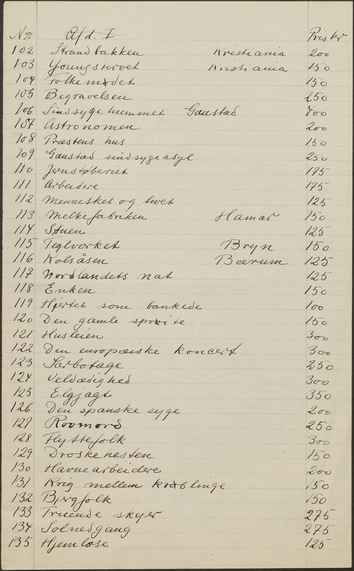 No Afd. I Priser
102 Strandbakken Kristiania 200
103 Youngstorvet Kristiania 150
104 Folkemødet 150
105 Begravelsen 250
106 Sindsygehemmet Gaustad 800
107 Astronomen 200
108 Præstens hus 150
109 Gaustad sindsygeasyl 250
110 Jernstøberiet 175
111 Arbeidere 175
112 Mennesket og livet 125
113 Melkefabriken Hamar 150
114 Stuen 125
115 Teglverket Bryn 150
116 Kolsåsen Bærum 125
117 Nordlandets nat 125
118 Enken 150
119 Hjertet som bankede 100
120 Den gamle 150
121 Husleien 300
122 Den europæiske koncert 300
123 Sabotage 250
124 Veldædighed 300
125 Elgjagt 350
126 Den spanske syge 200
127 Rovmord 250
128 Flyttefolk 300
129 Droskehesten 150
130 Havnearbeidere 200
131 Krig mellem kræklinge 150
132 Bergfolk 150
133 Truende skyer 275
134 Solnedgang 275
135 Hjemløse 125